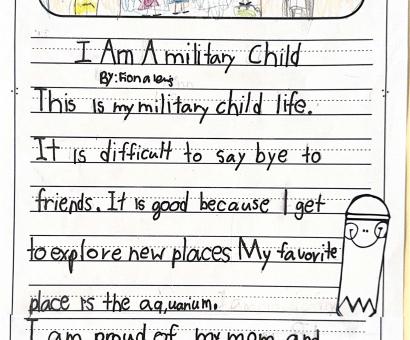 I Am A military Child
By: Fiona
This is my military child life.
It is difficult to say bye to
friends. It is good because I get
to explore new places My favorite
place is the aq,uarium.
I am proud of my mom and